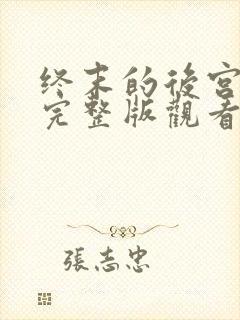 终末的後宮
完整版觀看
張志忠